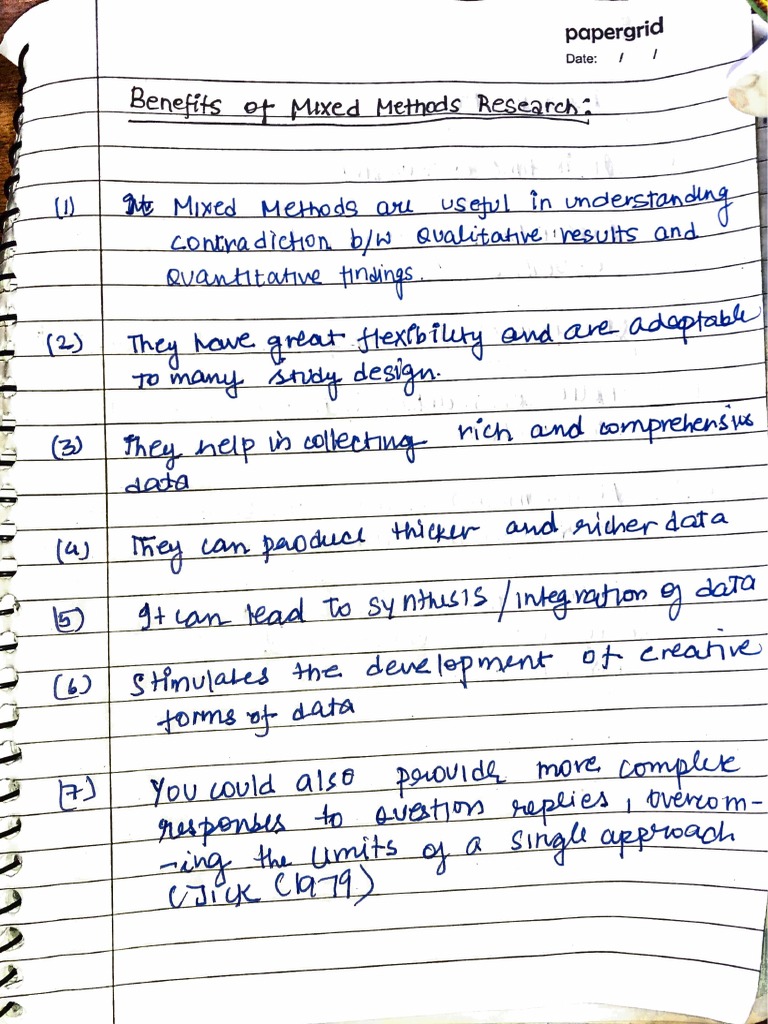 papergrid
Date: / /
Benefits of Mixed Methods Research:
(1) Mixed Methods are useful in understanding
contradiction b/w Qualitative results and
Quantitative findings.
(2) They have great flexibility and are adaptable
to many study design.
(3) They help in collecting rich and comprehensive
data
(4) They can produce thicker and richer data
(5) It can lead to synthesis/integration of data
(6) Stimulates the development of creative
forms of data
(7) You could also provide more complete
responses to question replies, overcom-
-ing the limits of a single approach
(Jick (1979)